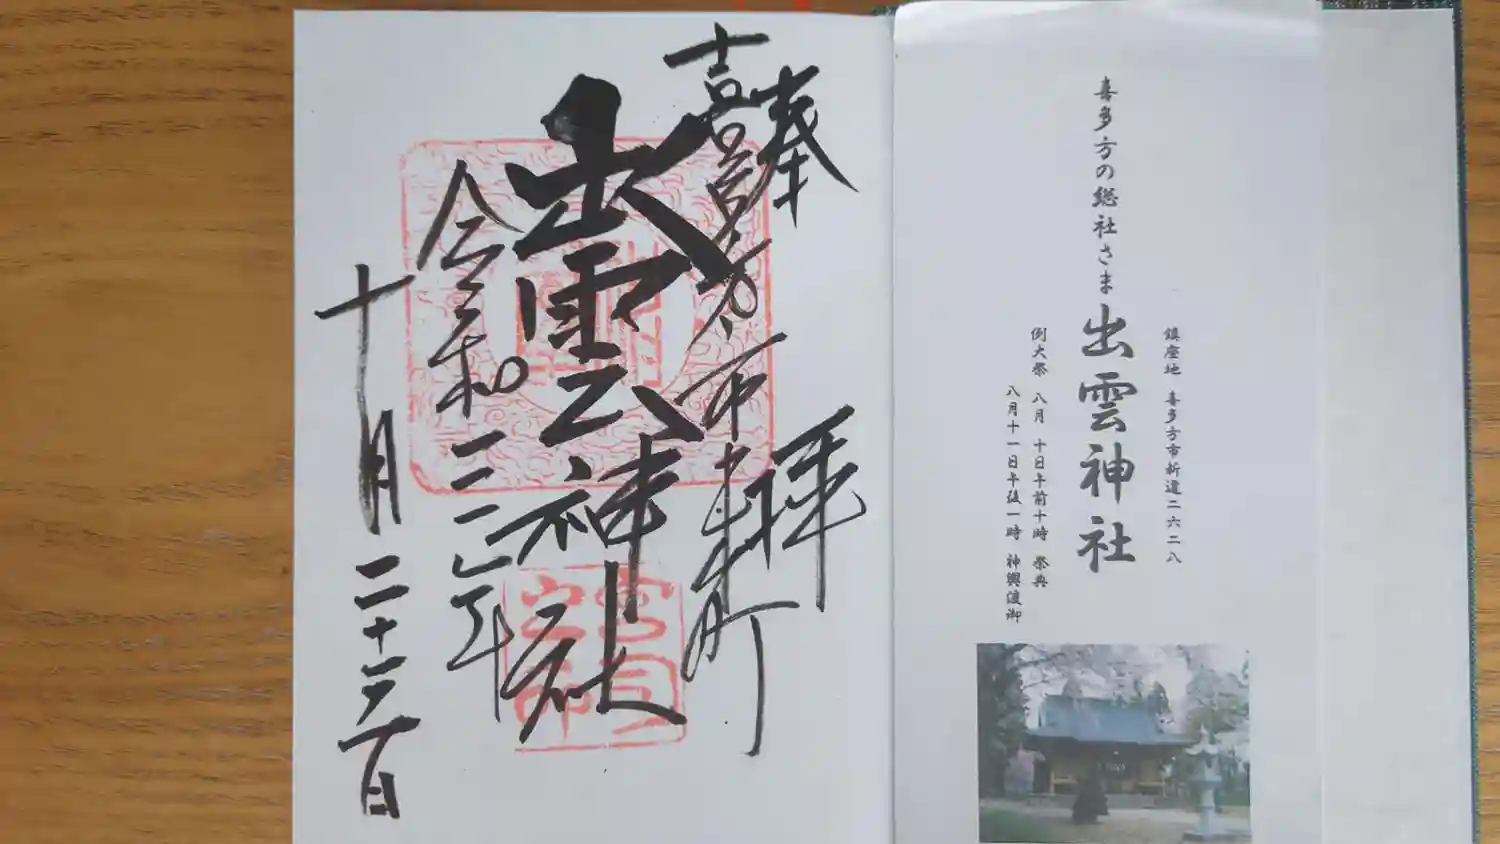 鎮座地 喜多方市新道二六二八
喜多方の総社さま 出雲神社
例大祭 八月 十日午前十時 祭典
八月十一日午後一時 神輿渡御
奉拝
喜多方市 町
出雲神社
令和三年
十月二十 日
宮司之印